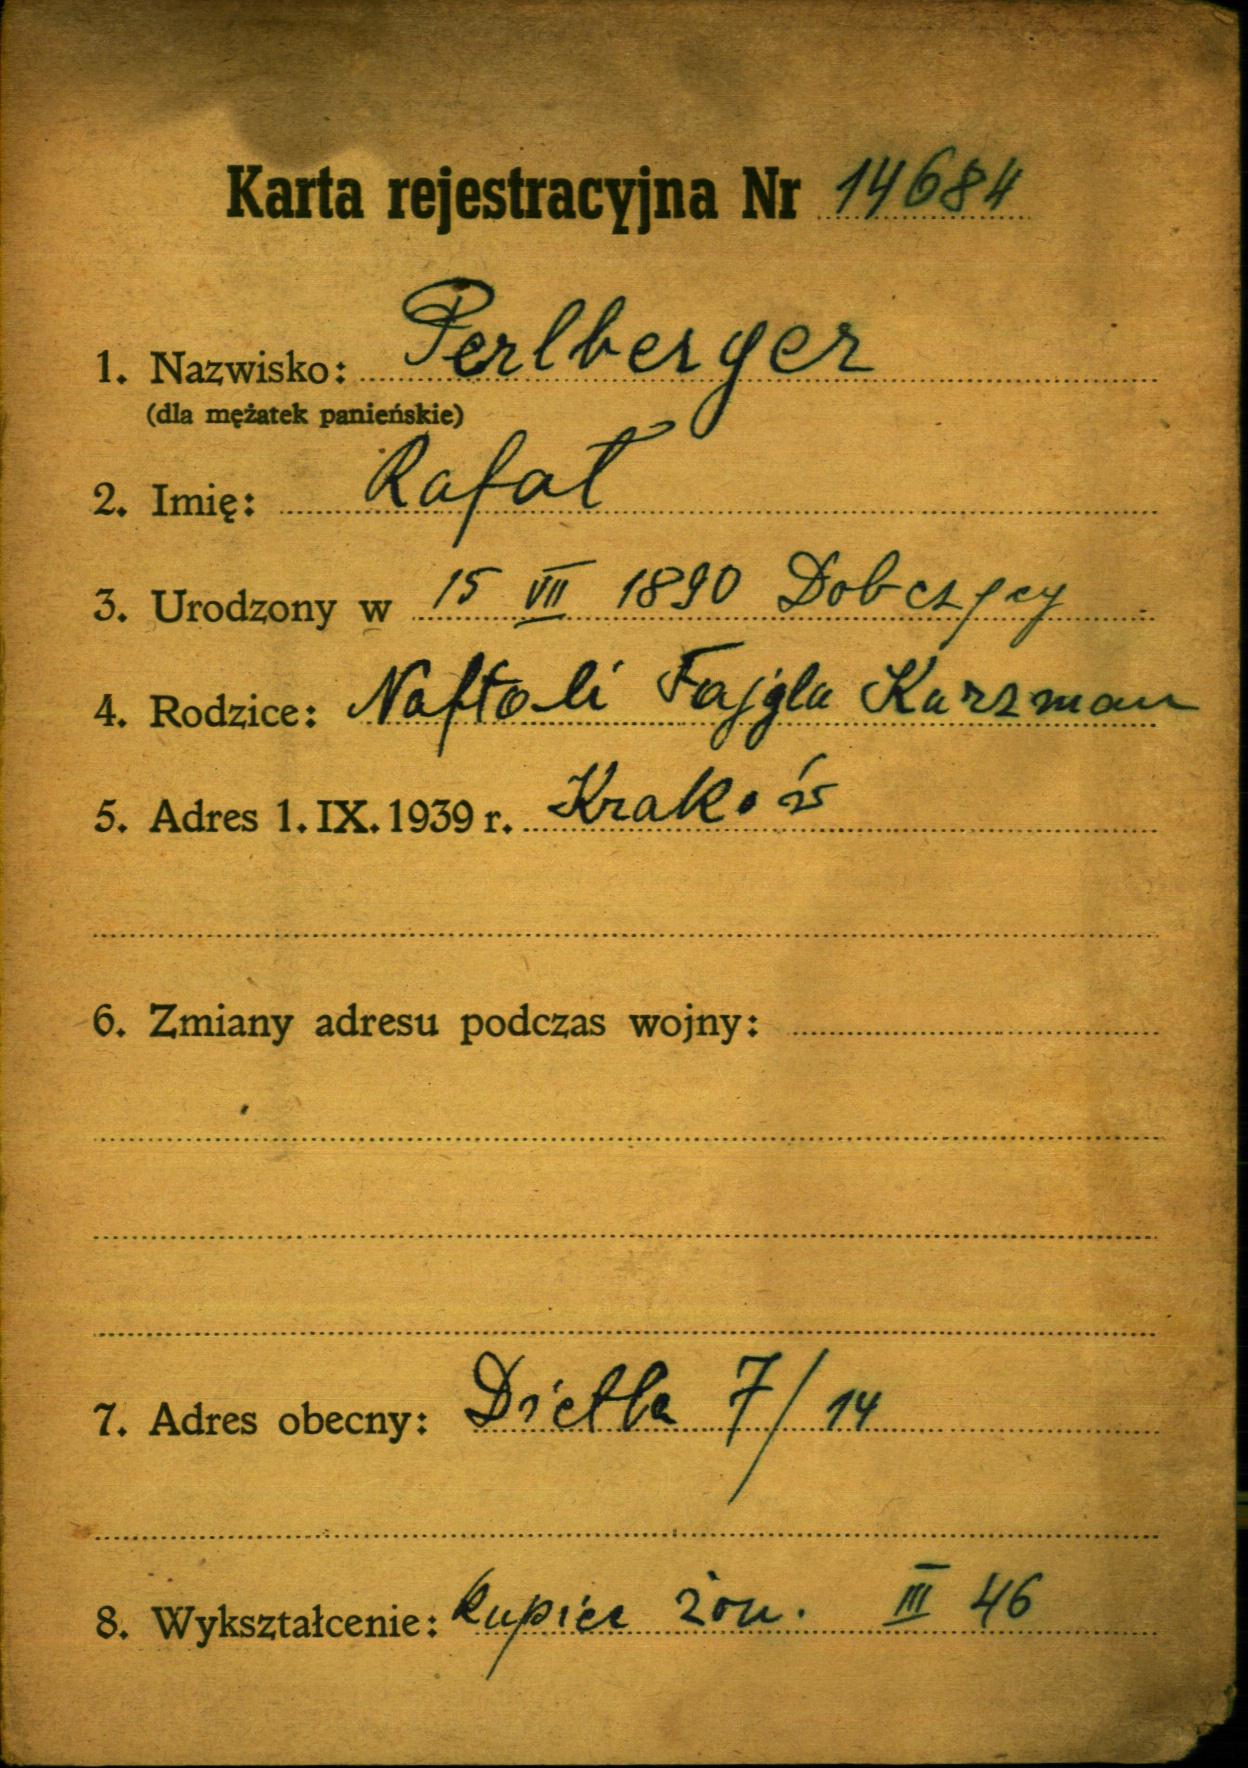 Karta rejestracyjna Nr 14684
1. Nazwisko: Perlberger
(dla mężatek panieńskie)
2. Imię: Rafał
3. Urodzony w 15 VII 1890 Dobczycy
4. Rodzice: Naftoli Fajgla Kurzman
5. Adres 1. IX. 1939 r. Kraków
6. Zmiany adresu podczas wojny:
7. Adres obecny: Dietla 7/14
8. Wykształcenie: kupiec żon. III 46